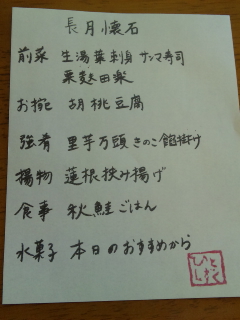 長月懐石
前菜 生湯葉刺身 サンマ寿司
栗麩田楽
お椀 胡桃豆腐
強肴 里芋万頭 きのこ餡掛け
揚物 蓮根挟み揚げ
食事 秋鮭ごはん
水菓子 本日のおすすめから